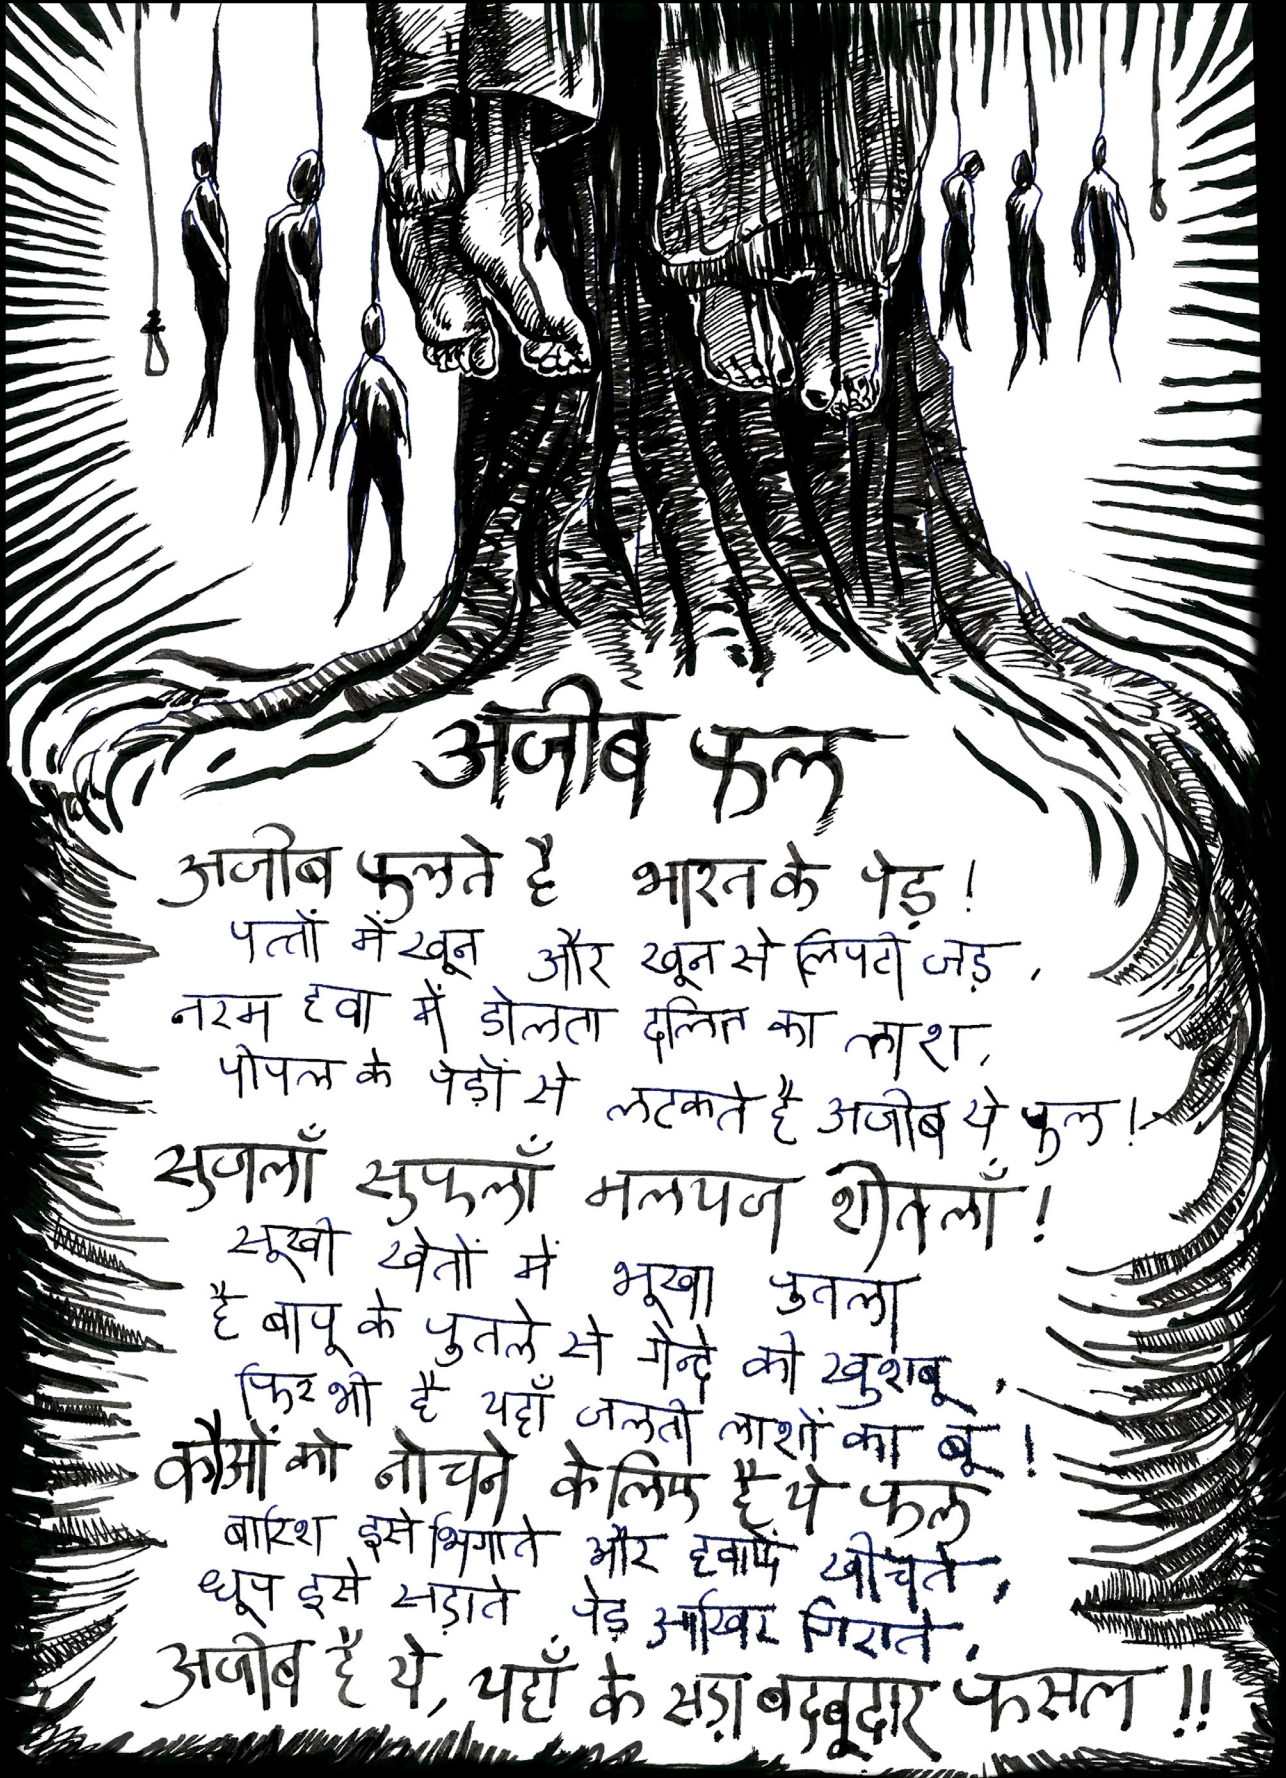 अजीब फल
अजीब फुलते है भारत के पेड़!
पत्तों में खून और खून से लिपटी जड़,
नरम हवा में डोलता दलित का लाश,
पीपल के पेड़ों से लटकते है अजीब ये फुल!
सुजलाँ सुफलाँ मलयज शीतलाँ!
सूखी खेतों में भूखा पुतला
है बापू के पुतले से गेन्दे की खुशबू,
फिर भी है यहाँ जलती लाशों का बू!
कौओं को नोचने के लिए है ये फल
बारिश इसे भिगाते और हवाएँ खीचते,
धूप इसे सड़ाते पेड़ आखिर गिराते,
अजीब है ये, यहाँ के सड़ा बदबूदार फसल !!